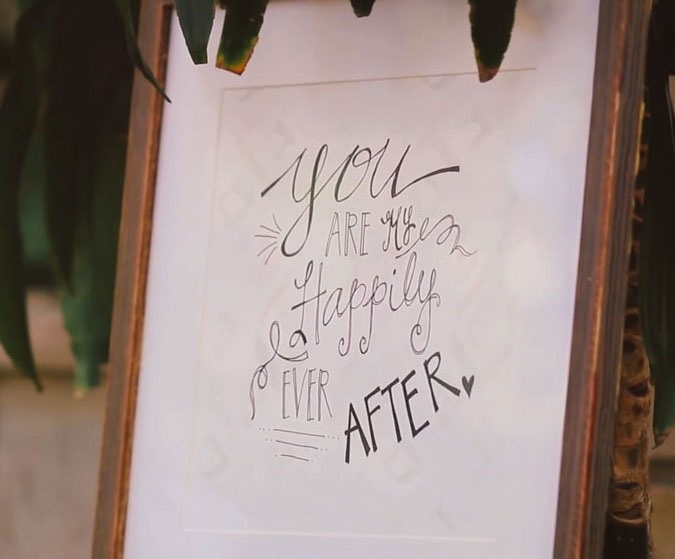 you
ARE My
Happily
EVER AFTER